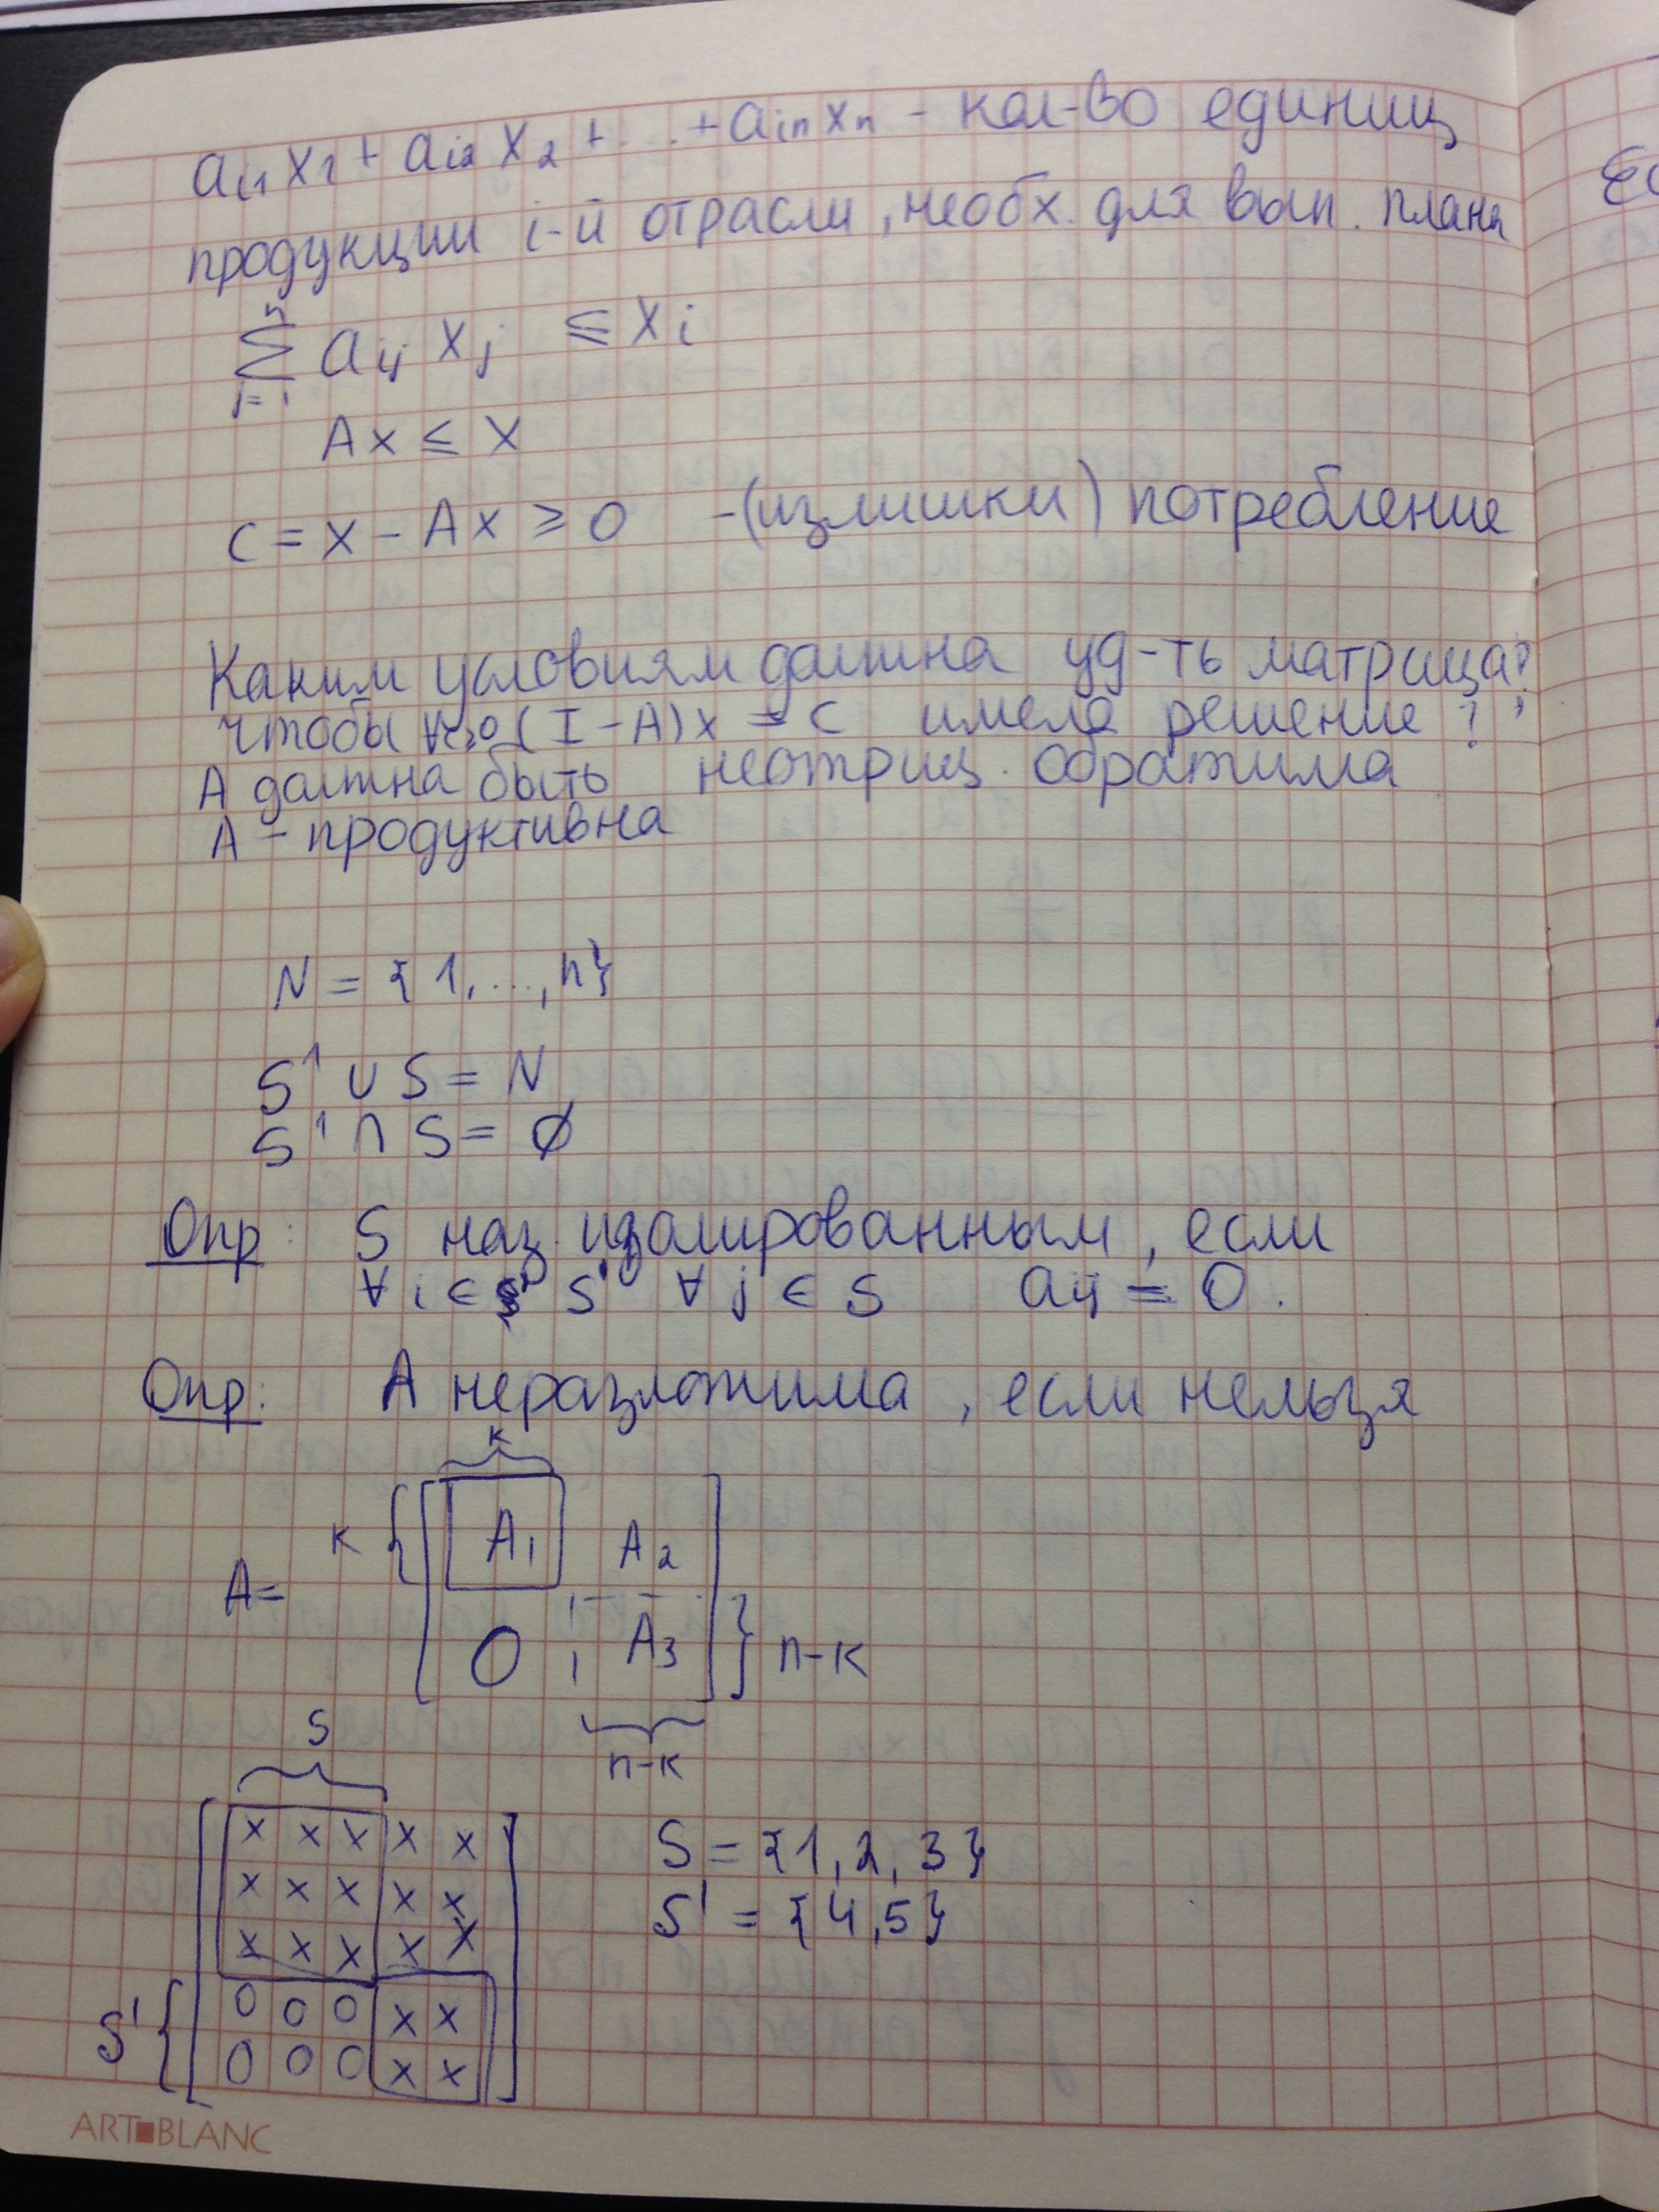 ai1 x1 + ai2 x2 + ... + ain xn - кол-во единиц
продукции i-й отрасли, необх. для вып. плана
n
∑ aij xj ≤ xi
j=1
Ax ≤ x
c = x - Ax ≥ 0 - (излишки) потребление
Каким условиям должна уд-ть матрица?
чтобы ∀c≥0 (I - A)x = c имела решение?
A должна быть неотриц. обратима
A - продуктивна
N = {1, ..., n}
S' ∪ S = N
S' ∩ S = ∅
Опр: S наз. изолированным, если
∀ i ∈ S' ∀ j ∈ S aij = 0.
Опр: A неразложима, если нельзя
к
к { A1 A2
A=
0 A3 } n-к
n-к
S
x x x x x S = {1, 2, 3}
x x x x x S' = {4, 5}
x x x x x
S' { 0 0 0 x x
0 0 0 x x
ART BLANC